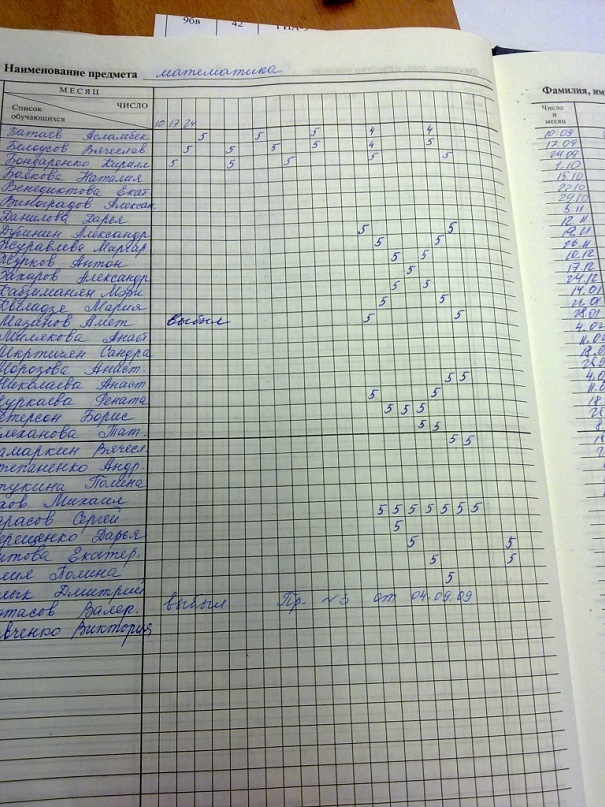 96в 42 ГИА-9
Наименование предмета математика
МЕСЯЦ
ЧИСЛО
Список обучающихся
10 17 24
Батаев Асламбек 5 5 5 4 4
Белоусов Вячеслав 5 5 5 5 4 5
Бондаренко Кирилл 5 5 5 5 5
Божкова Наталия
Венедиктова Екат
Виноградов Алексан
Данилова Дарья
Дубинин Александр 5 5
Журавлева Маргар 5 5
Жирков Антон 5 5
Захаров Александр 5
Кабзиманян Мэри 5 5
Квеладзе Мария 5 5
Мазанов Амет выбыл 5 5
Милякова Анаст
Мкртичян Сандра
Морозова Анаст.
Николаева Анаст 5 5
уркаева Рената 5 5
етерсон Борис 5 5 5
леханова Тат. 5 5
амаркин Вячесл. 5 5
тепаненко Андр.
тукина Полина
хов Михаил
арасов Сергей 5 5 5 5 5 5 5
ерещенко Дарья 5
итова Екатер. 5 5
лия Полина 5 5
лык Дмитрий 5
отасов Валер. выбыл Пр. №3 от 04.09.09
вченко Виктория
Фамилия, им
Число и месяц
10.09
17.09
24.09
1.10
15.10
22.10
29.10
5.11
12.11
19.11
26.11
10.12
17.12
24.12
14.01
21.01
28.01
4.02
11.02
18.0